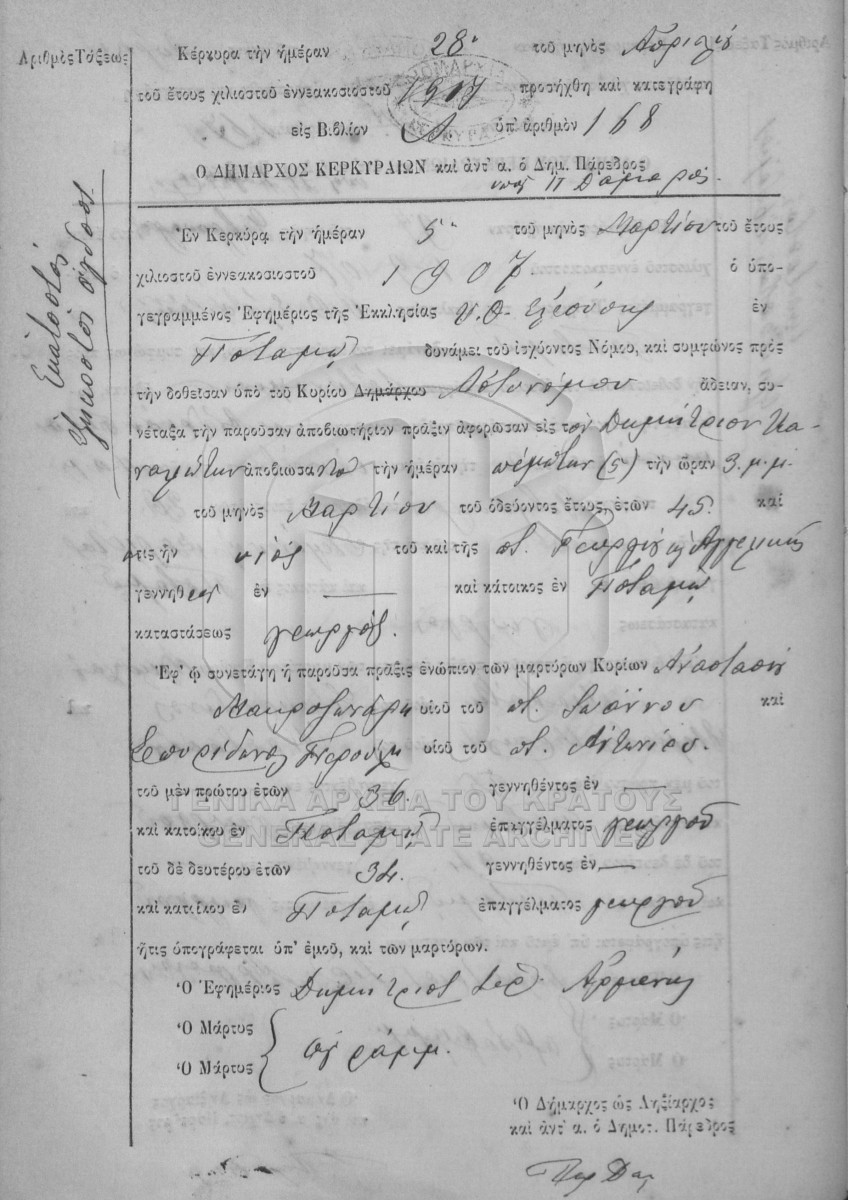 Ἀριθμὸς Τάξεως
Ἑκατοστὸς
ἑξηκοστὸς ὄγδοος
Κέρκυρα τὴν ἡμέραν 28ῃ τοῦ μηνὸς Ἀπριλίου
τοῦ ἔτους χιλιοστοῦ ἐννεακοσιοστοῦ 1907 προσήχθη καὶ κατεγράφη
εἰς Βιβλίον Α. ὑπ' ἀριθμὸν 168
Ο ΔΗΜΑΡΧΟΣ ΚΕΡΚΥΡΑΙΩΝ καὶ ἀντ' α. ὁ Δημ. Πάρεδρος
Ἐν Κερκύρᾳ τὴν ἡμέραν 5ῃ τοῦ μηνὸς Μαρτίου τοῦ ἔτους
χιλιοστοῦ ἐννεακοσιοστοῦ 1907 ὁ ὑπο-
γεγραμμένος Ἐφημέριος τῆς Ἐκκλησίας Υ.Θ. Ἐλεούσης ἐν
Ποταμῷ δυνάμει τοῦ ἰσχύοντος Νόμου, καὶ συμφώνως πρὸς
τὴν δοθεῖσαν ὑπὸ τοῦ Κυρίου Δημάρχου Ἀστυνόμου ἄδειαν, συ-
νέταξα τὴν παροῦσαν ἀποβιωτήριον πρᾶξιν ἀφορῶσαν εἰς τὸν Δημήτριον Κα-
ναλιώτην ἀποβιώσαντα τὴν ἡμέραν πέμπτην (5) τὴν ὥραν 3. μ.μ.
τοῦ μηνὸς Μαρτίου τοῦ ὁδεύοντος ἔτους, ἐτῶν 45 καὶ
ὅτις ἦν υἱὸς τοῦ καὶ τῆς π. Γεωργίου καὶ Ἀγγελικῆς
γεννηθεὶς ἐν — καὶ κάτοικος ἐν Ποταμῷ
καταστάσεως γεωργός.
Ἐφ' ᾧ συνετάγη ἡ παροῦσα πρᾶξις ἐνώπιον τῶν μαρτύρων Κυρίων Ἀναστασίου
υἱοῦ τοῦ π. Ἰωάννου καὶ
Σπυρίδωνος υἱοῦ τοῦ π. Ἀντωνίου.
τοῦ μὲν πρώτου ἐτῶν 36. γεννηθέντος ἐν —
ΓΕΝΙΚΑ ΑΡΧΕΙΑ ΤΟΥ ΚΡΑΤΟΥΣ
καὶ κατοίκου ἐν Ποταμῷ ἐπαγγέλματος γεωργοῦ
GENERAL STATE ARCHIVES
τοῦ δὲ δευτέρου ἐτῶν 34. γεννηθέντος ἐν —
καὶ κατοίκου ἐν Ποταμῷ ἐπαγγέλματος γεωργοῦ
ἥτις ὑπογράφεται ὑπ' ἐμοῦ, καὶ τῶν μαρτύρων.
Ὁ Ἐφημέριος Δημήτριος ἱερ. Ἀρμένης
Ὁ Μάρτυς
Ὁ Μάρτυς ἀγράμμ.
Ὁ Δήμαρχος ὡς Ληξίαρχος
καὶ ἀντ' α. ὁ Δημοτ. Πάρεδρος